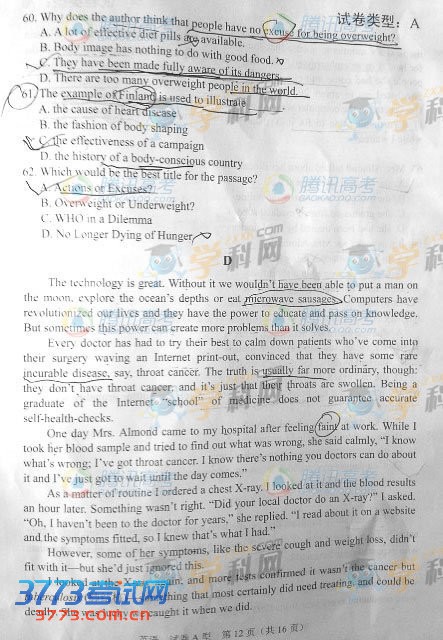 试卷类型：A
60. Why does the author think that people have no excuse for being overweight?
A. A lot of effective diet pills are available.
B. Body image has nothing to do with good food.
C. They have been made fully aware of its dangers.
D. There are too many overweight people in the world.
61. The example of Finland is used to illustrate
A. the cause of heart disease
B. the fashion of body shaping
C. the effectiveness of a campaign
D. the history of a body-conscious country
62. Which would be the best title for the passage?
A. Actions or Excuses?
B. Overweight or Underweight?
C. WHO in a Dilemma
D. No Longer Dying of Hunger
D
The technology is great. Without it we wouldn't have been able to put a man on
the moon, explore the ocean's depths or eat microwave sausages. Computers have
revolutionized our lives and they have the power to educate and pass on knowledge.
But sometimes this power can create more problems than it solves.
Every doctor has had to try their best to calm down patients who've come into
their surgery waving an Internet print-out, convinced that they have some rare
incurable disease, say, throat cancer. The truth is usually far more ordinary, though:
they don't have throat cancer, and it's just that their throats are swollen. Being a
graduate of the Internet "school" of medicine does not guarantee accurate
self-health-checks.
One day Mrs. Almond came to my hospital after feeling faint at work. While I
took her blood sample and tried to find out what was wrong, she said calmly, "I know
what's wrong; I've got throat cancer. I know there's nothing you doctors can do about
it and I've just got to wait until the day comes."
As a matter of routine I ordered a chest X-ray. I looked at it and the blood results
an hour later. Something wasn't right. "Did your local doctor do an X-ray?" I asked.
"Oh, I haven't been to the doctor for years," she replied. "I read about it on a website
and the symptoms fitted, so I knew that's what I had."
However, some of her symptoms, like the severe cough and weight loss, didn't
fit with it—but she'd just ignored this.
I looked at the X-ray again, and more tests confirmed it wasn't the cancer but
tuberculosis thing that most certainly did need treating, and could be
deadly. She caught it when we did.
英语 试卷A型 第 12 页（共 16 页）
3773考试网
3773.com.cn
腾讯高考
学科网
腾讯高考
学科网